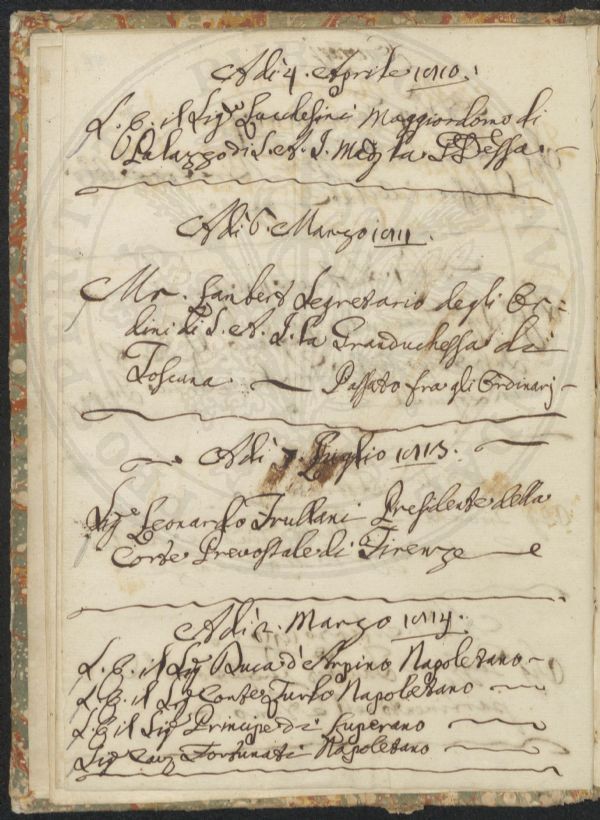 Adì 4. Aprile 1810.
S. E. il Sigr. Lucchesini Maggiordomo di
Palazzo di S. A. I. Mad la PP.Dessa. —
Adì 6 Marzo 1811.
Mr. Lanbert Segretario degli Or=
dini di S. A. I. la Granduchessa di
Toscana. — Passato fra gli Ordinarj —
Adì 7. Luglio 1813.
Sigr. Leonardo Frullani Presidente della
Corte Prevostale di Firenze
Adì 2. Marzo 1814.
S. E. il Sigr. Duca d'Arpino Napoletano —
S. E. il Sigr. Conte Zurlo Napoletano —
S. E. il Sigr. Principe di Luperano —
Sigr. Cav. Fortunati Napoletano —